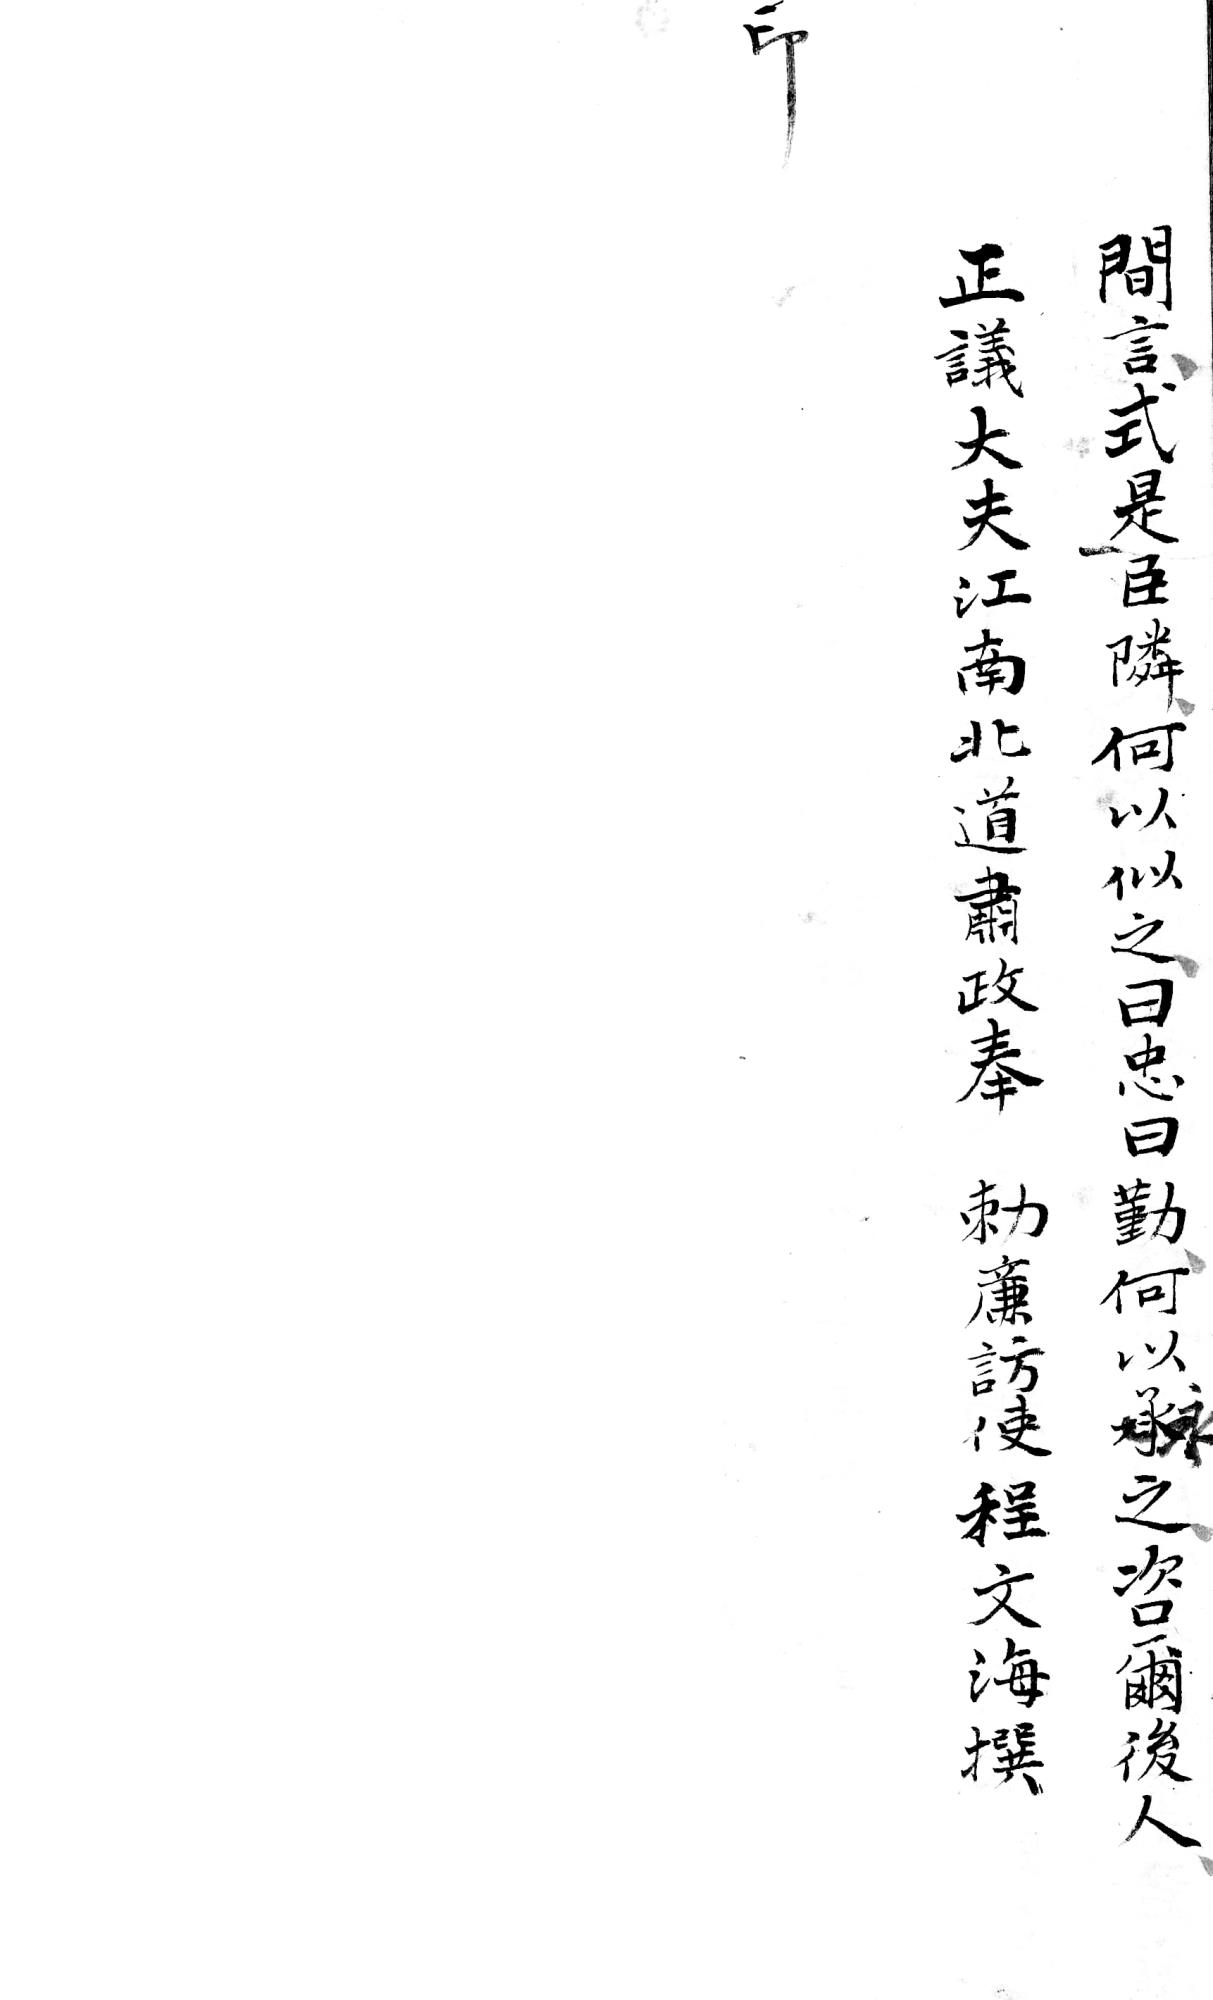 間言式是臣隣何以似之曰忠曰勤何以承之咨爾後人
正議大夫江南北道肅政奉　勅廉訪使程文海撰
印